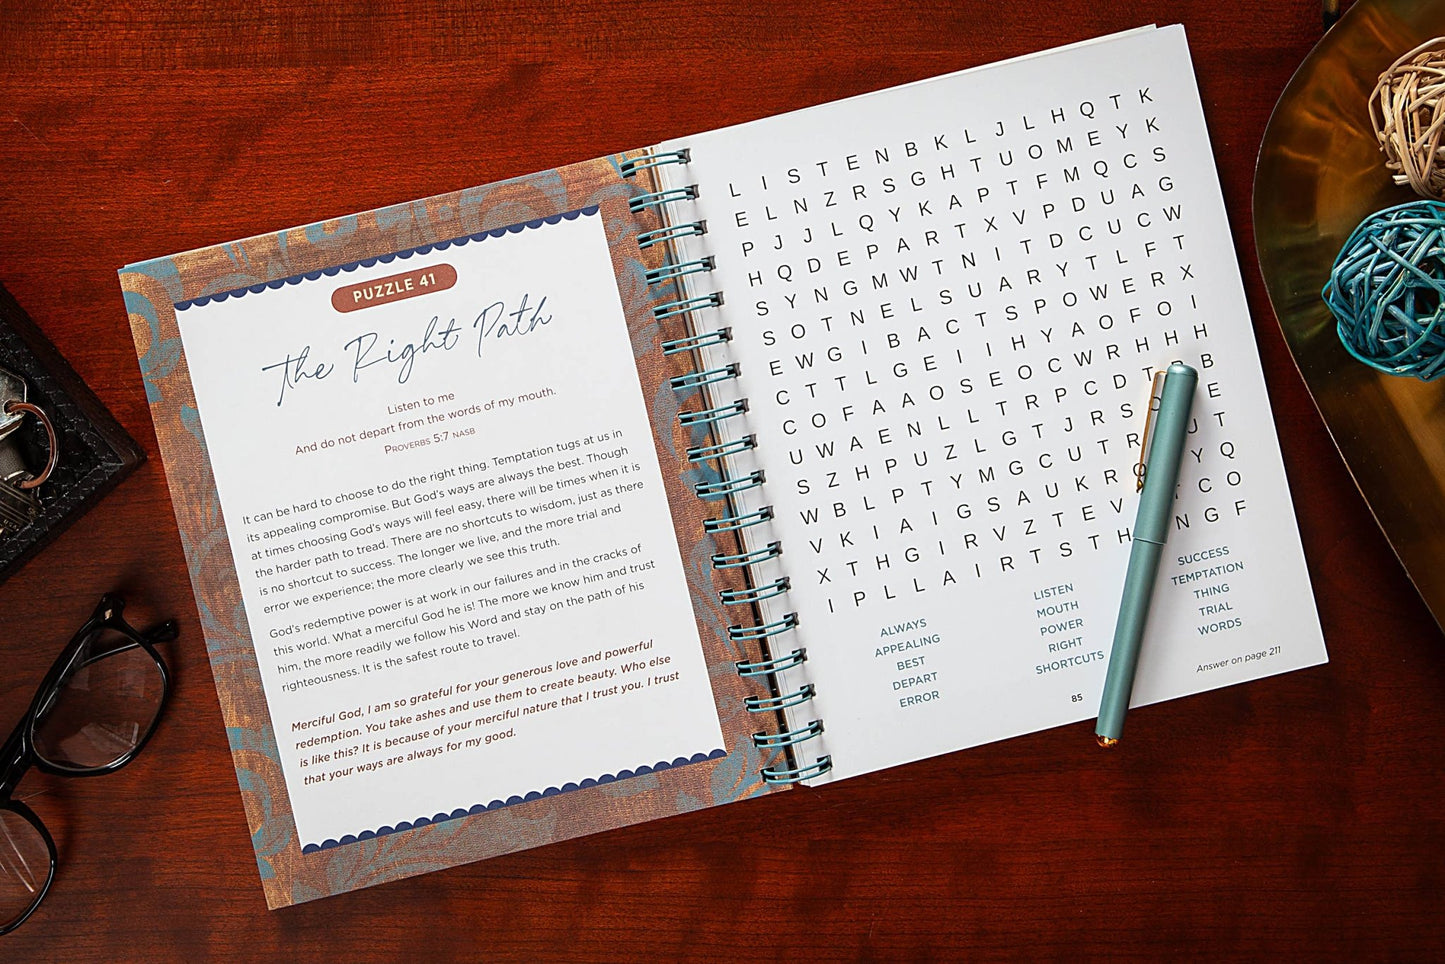 PUZZLE 41
The Right Path
Listen to me
And do not depart from the words of my mouth.
Proverbs 5:7 NASB
It can be hard to choose to do the right thing. Temptation tugs at us in
its appealing compromise. But God's ways are always the best. Though
at times choosing God's ways will feel easy, there will be times when it is
the harder path to tread. There are no shortcuts to wisdom, just as there
is no shortcut to success. The longer we live, and the more trial and
error we experience; the more clearly we see this truth.
God's redemptive power is at work in our failures and in the cracks of
this world. What a merciful God he is! The more we know him and trust
him, the more readily we follow his Word and stay on the path of his
righteousness. It is the safest route to travel.
Merciful God, I am so grateful for your generous love and powerful
redemption. You take ashes and use them to create beauty. Who else
is like this? It is because of your merciful nature that I trust you. I trust
that your ways are always for my good.
L I S T E N B K L J L H Q T K
E L N Z R S G H T U O M E Y K
P J J L Q Y K A P T F M Q C S
H Q D E P A R T X V P D U A G
S Y N G M W T N I T D C U C W
S O T N E L S U A R Y T L F T
E W G I B A C T S P O W E R X
C T T L G E I I H Y A O F O I
C O F A A O S E O C W R H H H
U W A E N L L T R P C D T B
S Z H P U Z L G T J R S E
W B L P T Y M G C U T R U T
V K I A I G S A U K R Y Q
X T H G I R V Z T E V C O
I P L L A I R T S T H N G F
ALWAYS
APPEALING
BEST
DEPART
ERROR
LISTEN
MOUTH
POWER
RIGHT
SHORTCUTS
SUCCESS
TEMPTATION
THING
TRIAL
WORDS
Answer on page 211
85